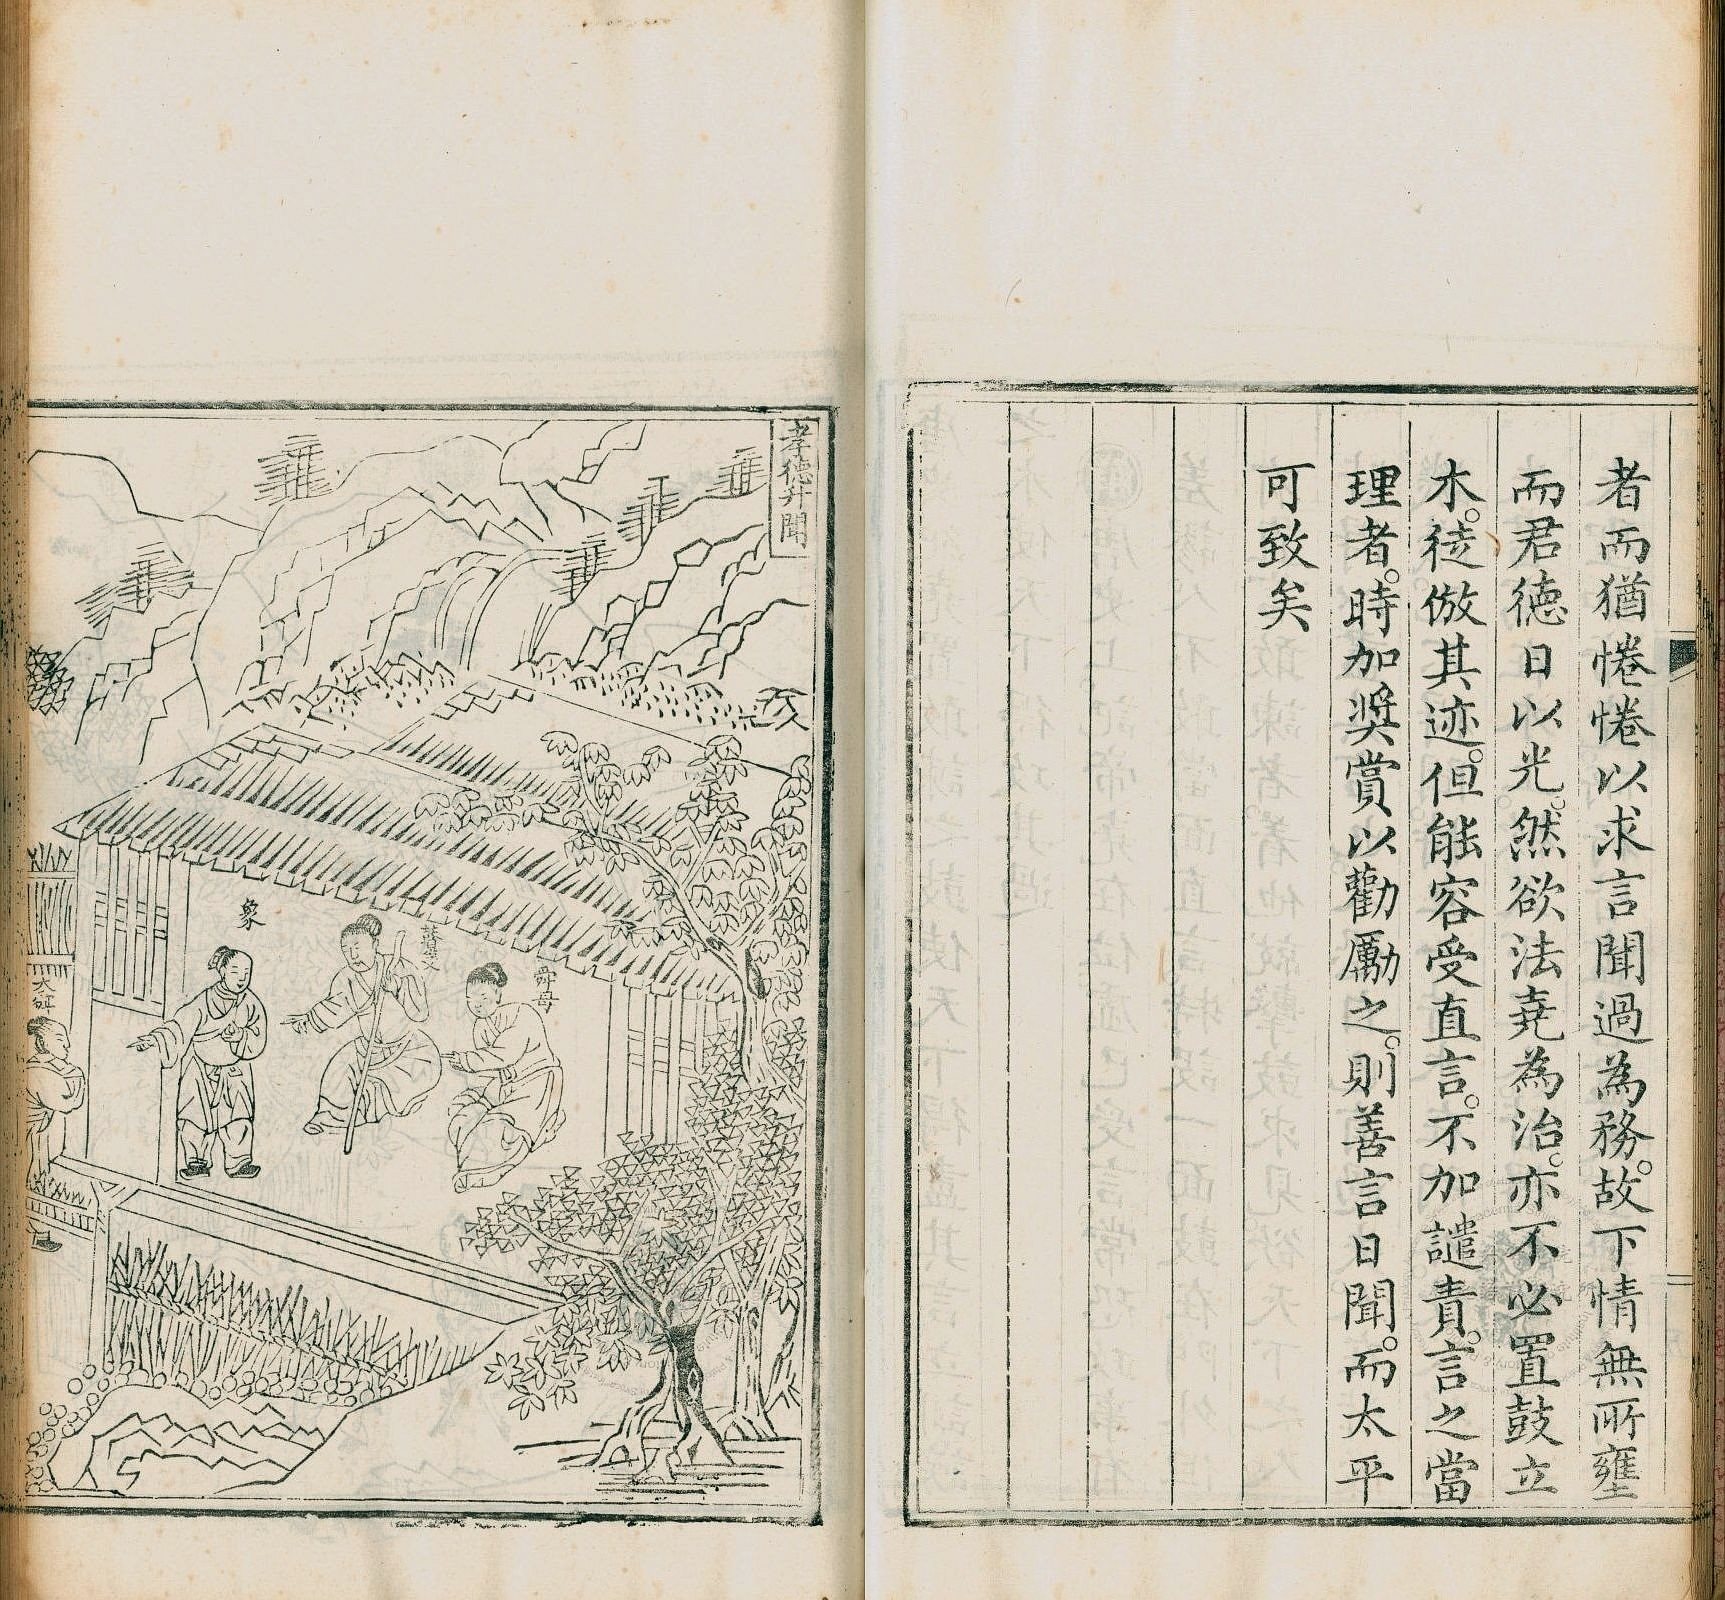 者而猶惓惓以求言聞過為務。故下情無所壅
而君德日以光。然欲法堯為治。亦不必置鼓立
木。徒倣其迹。但能容受直言。不加譴責。言之當
理者。時加奬賞以勸勵之。則善言日聞。而太平
可致矣
孝德升聞
舜母
瞽瞍父
象
大舜